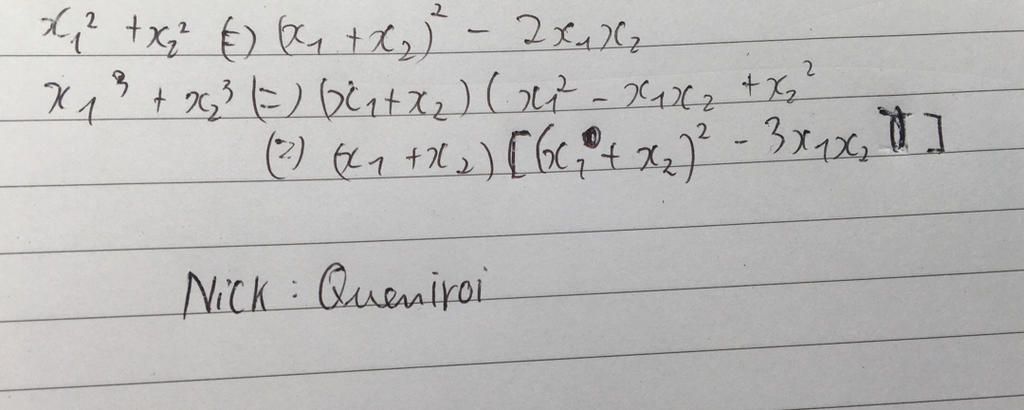 x₁² + x₂² (=) (x₁ + x₂)² - 2x₁x₂
x₁³ + x₂³ (=) (x₁ + x₂) ( x₁² - x₁x₂ + x₂²
(=) (x₁ + x₂) [(x₁ + x₂)² - 3x₁x₂ ]
Nick : Queniroi